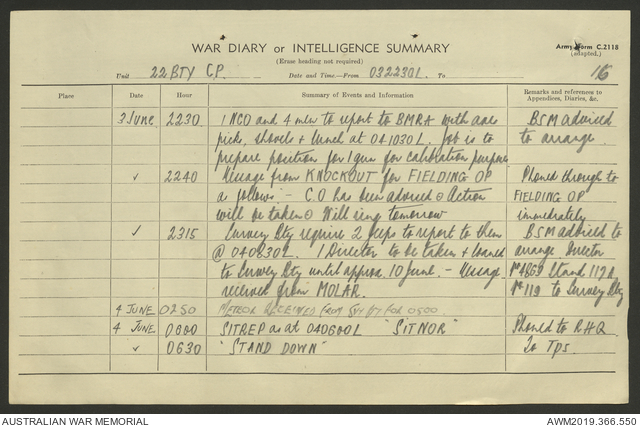 WAR DIARY or INTELLIGENCE SUMMARY
(Erase heading not required)
Army Form C.2118
(adapted.)
Unit 22 BTY C.P. Date and Time.—From 032230L To 16
Place Date Hour Summary of Events and Information Remarks and references to Appendices, Diaries, &c.
3 June 2230 1 NCO and 4 men to report to BMRA with axes BSM advised
picks, shovels & lunch at 041030L. Job is to to arrange.
prepare position for 1 gun for calibration purpose
✓ 2240 Message from KNOCKOUT for FIELDING OP Phoned through to
as follows :— C.O has been advised ⊙ Action FIELDING OP
will be taken ⊙ Will ring tomorrow immediately
✓ 2315 Survey Bty require 2 jeeps to report to them BSM advised to
@ 040830L. 1 Director to be taken & loaned arrange. Director
to Survey Bty until approx. 10 June. — Message Nº 4869 Stand 119A
received from MOLAR. Nº 119 to Survey Bty
4 JUNE 0250 METEOR RECEIVED FROM FOR 0500.
4 JUNE 0600 SITREP as at 040600L "SITNOR" Phoned to RHQ
✓ 0630 "STAND DOWN" To Tps.
AUSTRALIAN WAR MEMORIAL AWM2019.366.550